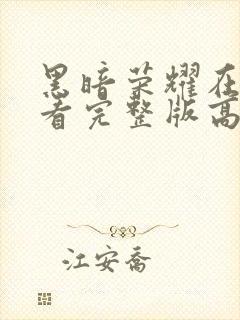 黑暗荣耀在
看完整版高
江安乔